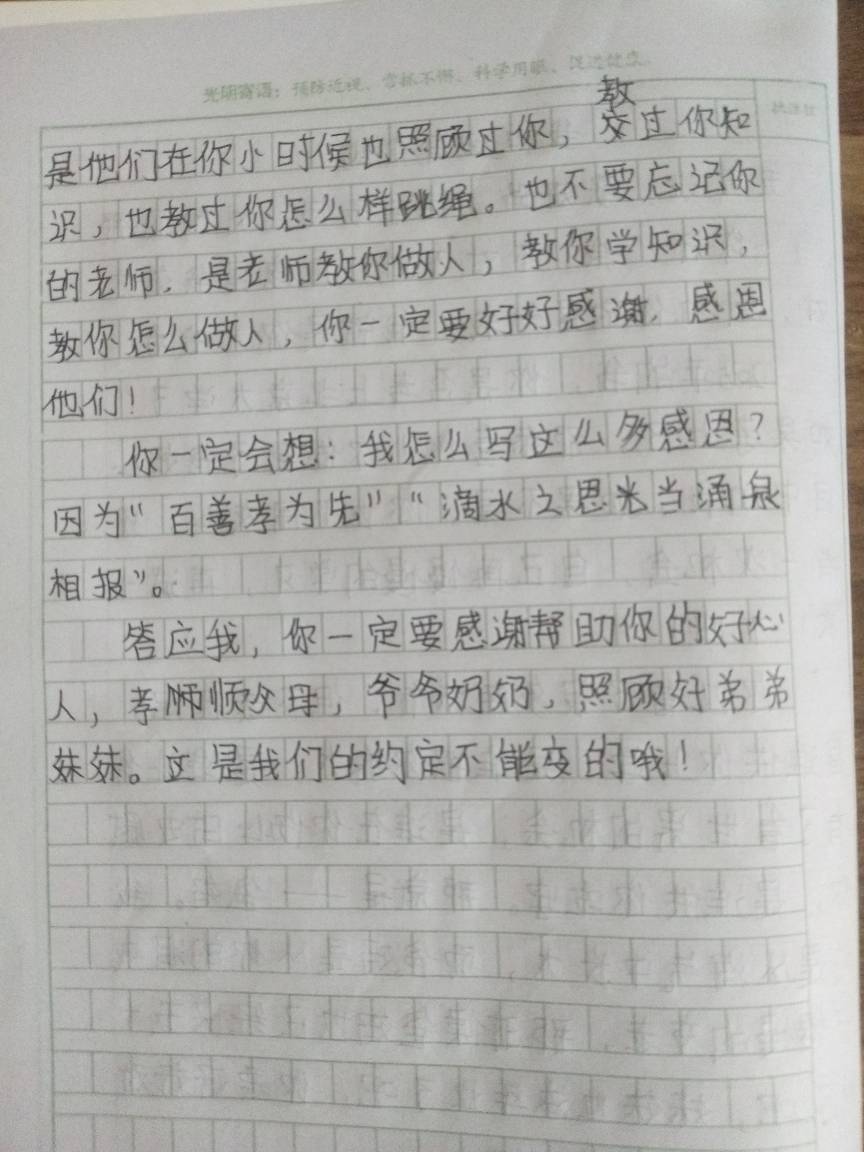 光明寄语：预防近视、常抓不懈、科学用眼、促进健康。
教
是他们在你小时候也照顾过你，交过你知
识，也教过你怎么样跳绳。也不要忘记你
的老师．是老师教你做人，教你学知识，
教你怎么做人，你一定要好好感谢．感恩
他们！
你一定会想：我怎么写这么多感恩？
因为“百善孝为先”“滴水之恩当涌泉
相报”。
答应我，你一定要感谢帮助你的好心
人，孝顺父母，爷爷奶奶，照顾好弟弟
妹妹。这是我们的约定不能变的哦！